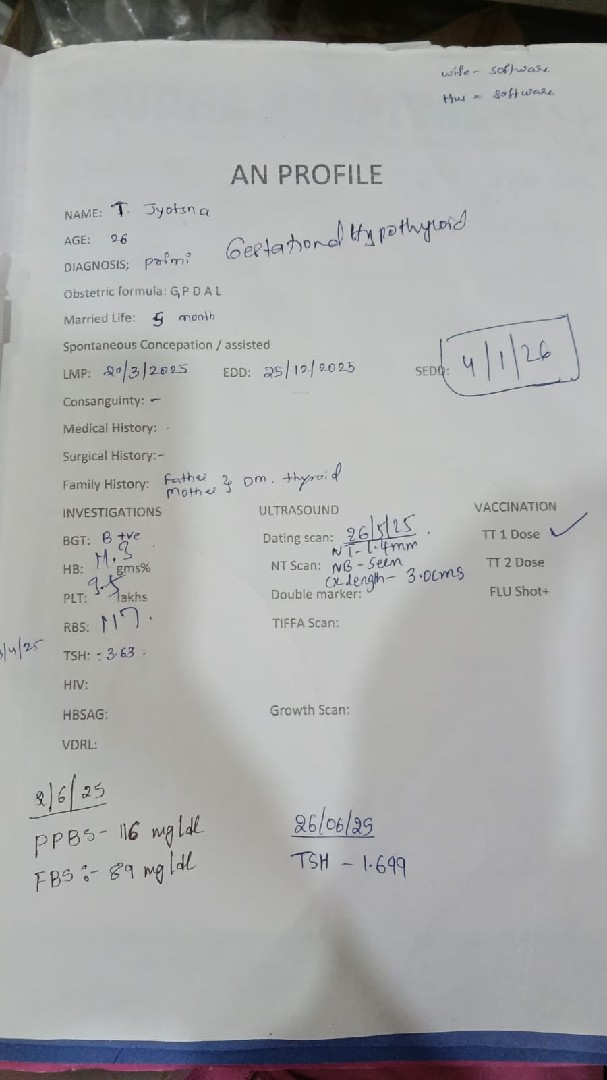 wife - software
Hus - software
AN PROFILE
NAME: T. Jyotsna
AGE: 26
DIAGNOSIS; primi Gestational Hypothyroid
Obstetric formula: G,P D A L
Married Life: 5 month
Spontaneous Concepation / assisted
LMP: 20/3/2025 EDD: 25/12/2025 SEDD: 4/1/26
Consanguinty: -
Medical History: -
Surgical History:-
Family History: Father Mother } Dm. thyroid
INVESTIGATIONS ULTRASOUND VACCINATION
BGT: B +ve Dating scan: 26/5/25 TT 1 Dose ✓
NT - 1.4mm
HB: gms% NT Scan: NB - Seen TT 2 Dose
Cx length - 3.0cms
PLT: lakhs Double marker: FLU Shot+
RBS: 117. TIFFA Scan:
/4/25 TSH: - 3.63
HIV:
HBSAG: Growth Scan:
VDRL:
2/6/25
PPBS - 116 mg/dl
FBS :- 89 mg/dl
26/06/25
TSH - 1.699